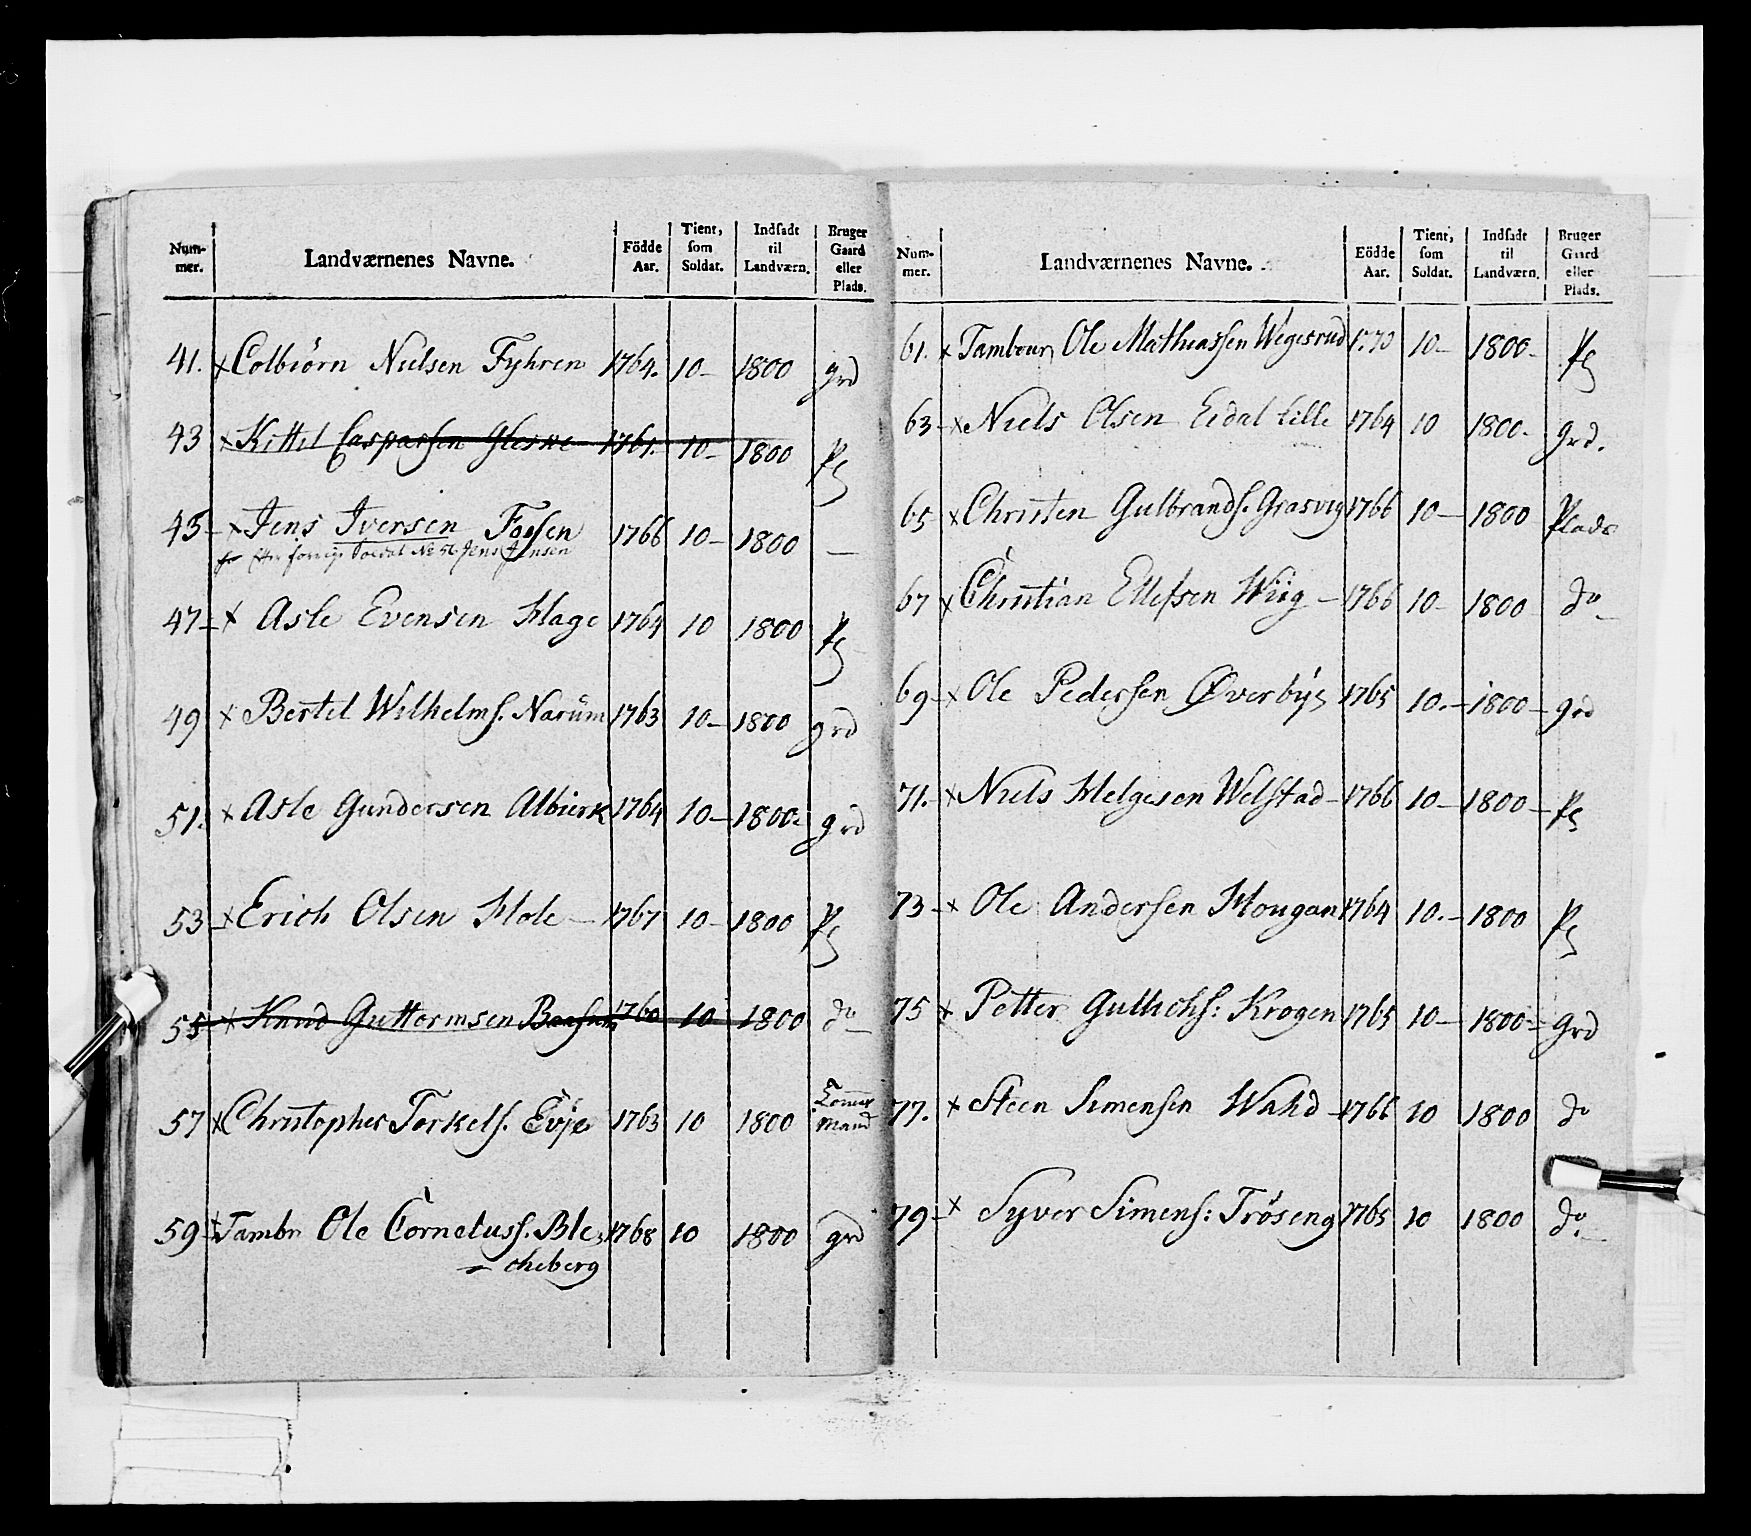 Num- mer. Landværnenes Navne. Födde Aar. Tient, som Soldat. Indsadt til Landværn. Bruger Gaard eller Plads.
41. x Colbiörn Nielsen Fyhren 1764. 10- 1800 grd
43 x Kittil Caspersen Gleske 1761. 10- 1800 Pl
45- x Jens Iversen Fossen 1766 10- 1800 —
forrige Soldat No 56 Jens Jensen
47- x Asle Evensen Hage 1764 10 1800 Pl
49 x Bertel Wilhelms. Narüm 1763 10- 1800 grd
51. x Asle Gundersen Albierk 1764 10- 1800- grd
53- x Erich Olsen Hole — 1767 10- 1800 Pl
55 x Knud Guttormsen 1760 10 1800 do
57 x Christopher Torkels. Evje 1763 10 1800 Tömmermand
59- x Tambr Ole Cornelius. Ble- 1768 10 1800 grd
- cheberg
Num- mer. Landværnenes Navne. Eödde Aar. Tient, som Soldat. Indsadt til Landværn. Bruger Gaard eller Plads.
61. x Tambour Ole Mathiassen Wegesrud 1770 10- 1800- Pl
63- x Niels Olsen Eidal lille 1764 10 1800- Grd.
65 x Christen Gulbrands. Grasvig 1766 10- 1800 Plads
67 x Christian Ellefsen Wiig - 1766 10- 1800 do
69- x Ole Pedersen Øverbÿe 1765 10.- 1800- grd
71.- x Niels Helgesen Welstad- 1766 10- 1800- Pl
73- x Ole Andersen Hougan 1764 10.- 1800 Pl
75 x Petter Gullichs: Krogen 1765 10- 1800- Grd
77. x Steen Simensen Wahd - 1766 10 1800 do
79- x Syver Simens: Tröseng 1765 10 1800 do.